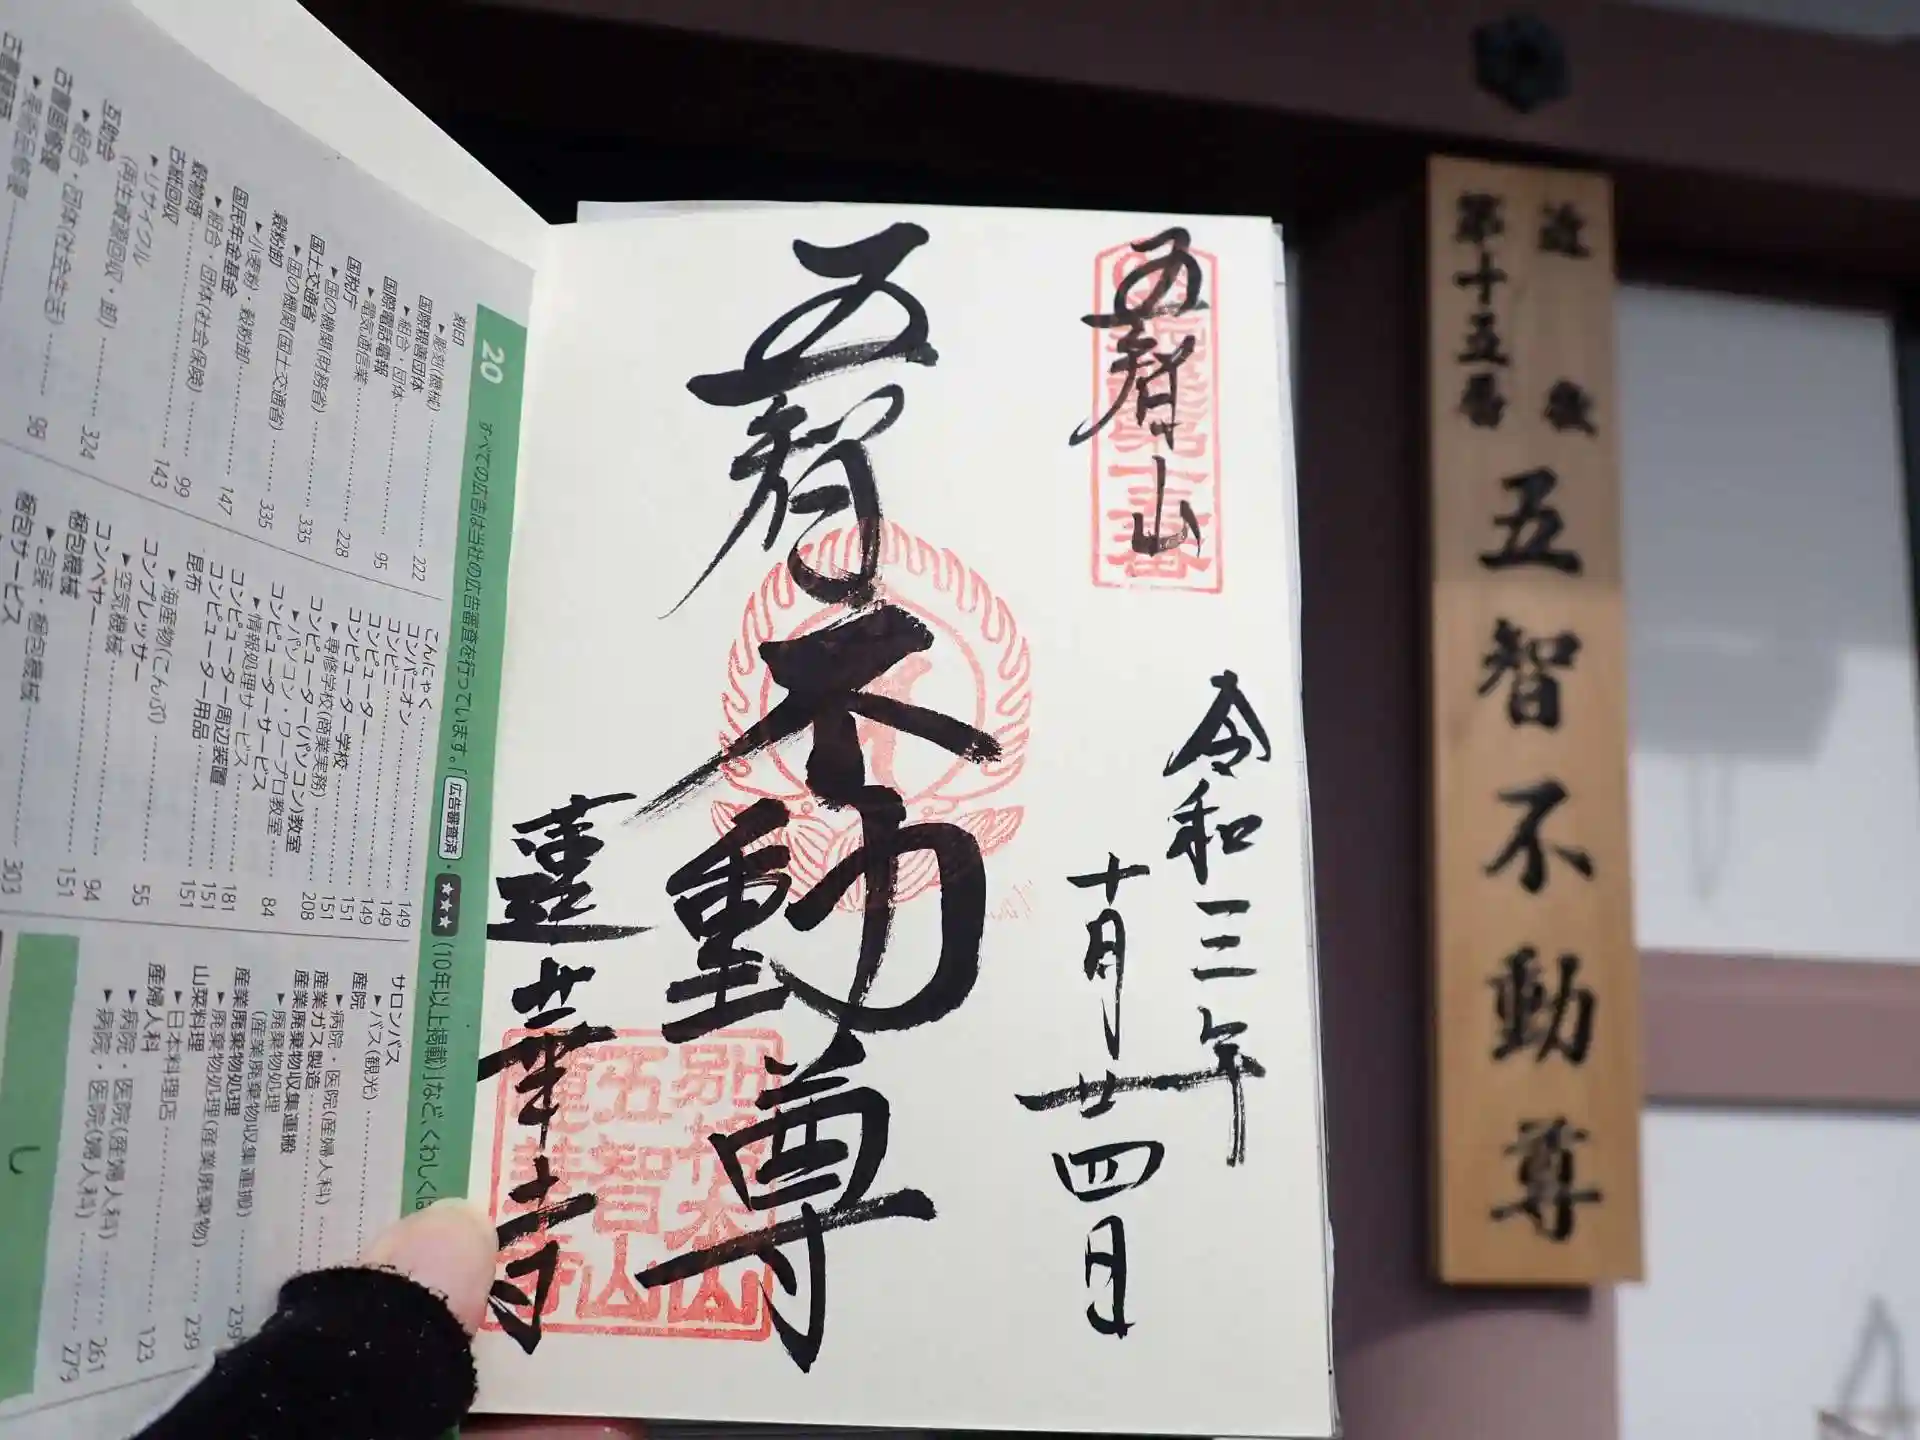 近畿
第十五番
五智不動尊
五智山
令和三年
十月廿四日
五智不動尊
蓮華寺
別格本山
五智山
蓮華寺
20
すべての広告は当社の広告審査を行っています。「広告審査済・★★★(10年以上掲載)」など、くわしくは
刻印
▶彫刻(機械) 222
国際親善団体
▶組合・団体 95
国際電話電報
▶電気通信業 228
国税庁
▶国の機関(財務省) 335
国土交通省
▶国の機関(国土交通省) 335
穀粉卸
▶小麦粉・穀粉卸 147
国民年金基金
▶組合・団体(社会保険) 99
穀物商 143
古紙回収
▶リサイクル
(再生資源回収・卸) 324
互助会
▶組合・団体(社会生活) 98
古書画修復
▶美術品修復
こんにゃく 149
コンパニオン 149
コンビニ 149
コンピューター 151
コンピューター学校
▶専修学校(商業実務) 208
コンピューター(パソコン)教室
▶パソコン・ワープロ教室 84
コンピューターサービス
▶情報処理サービス 181
コンピューター周辺装置 151
コンピューター用品 151
昆布
▶海産物(こんぶ) 55
コンプレッサー
▶空気機械 94
コンベヤー 151
梱包機械
▶包装・梱包機械 303
梱包サービス
サロンバス
▶バス(観光)
産院
▶病院・医院(産婦人科)
産業ガス製造
産業廃棄物収集運搬
▶廃棄物処理
(産業廃棄物収集運搬) 239
産業廃棄物処理
▶廃棄物処理(産業廃棄物) 239
山菜料理
▶日本料理店 123
産婦人科
▶病院・医院(産婦人科) 261
▶病院・医院(婦人科) 279
し